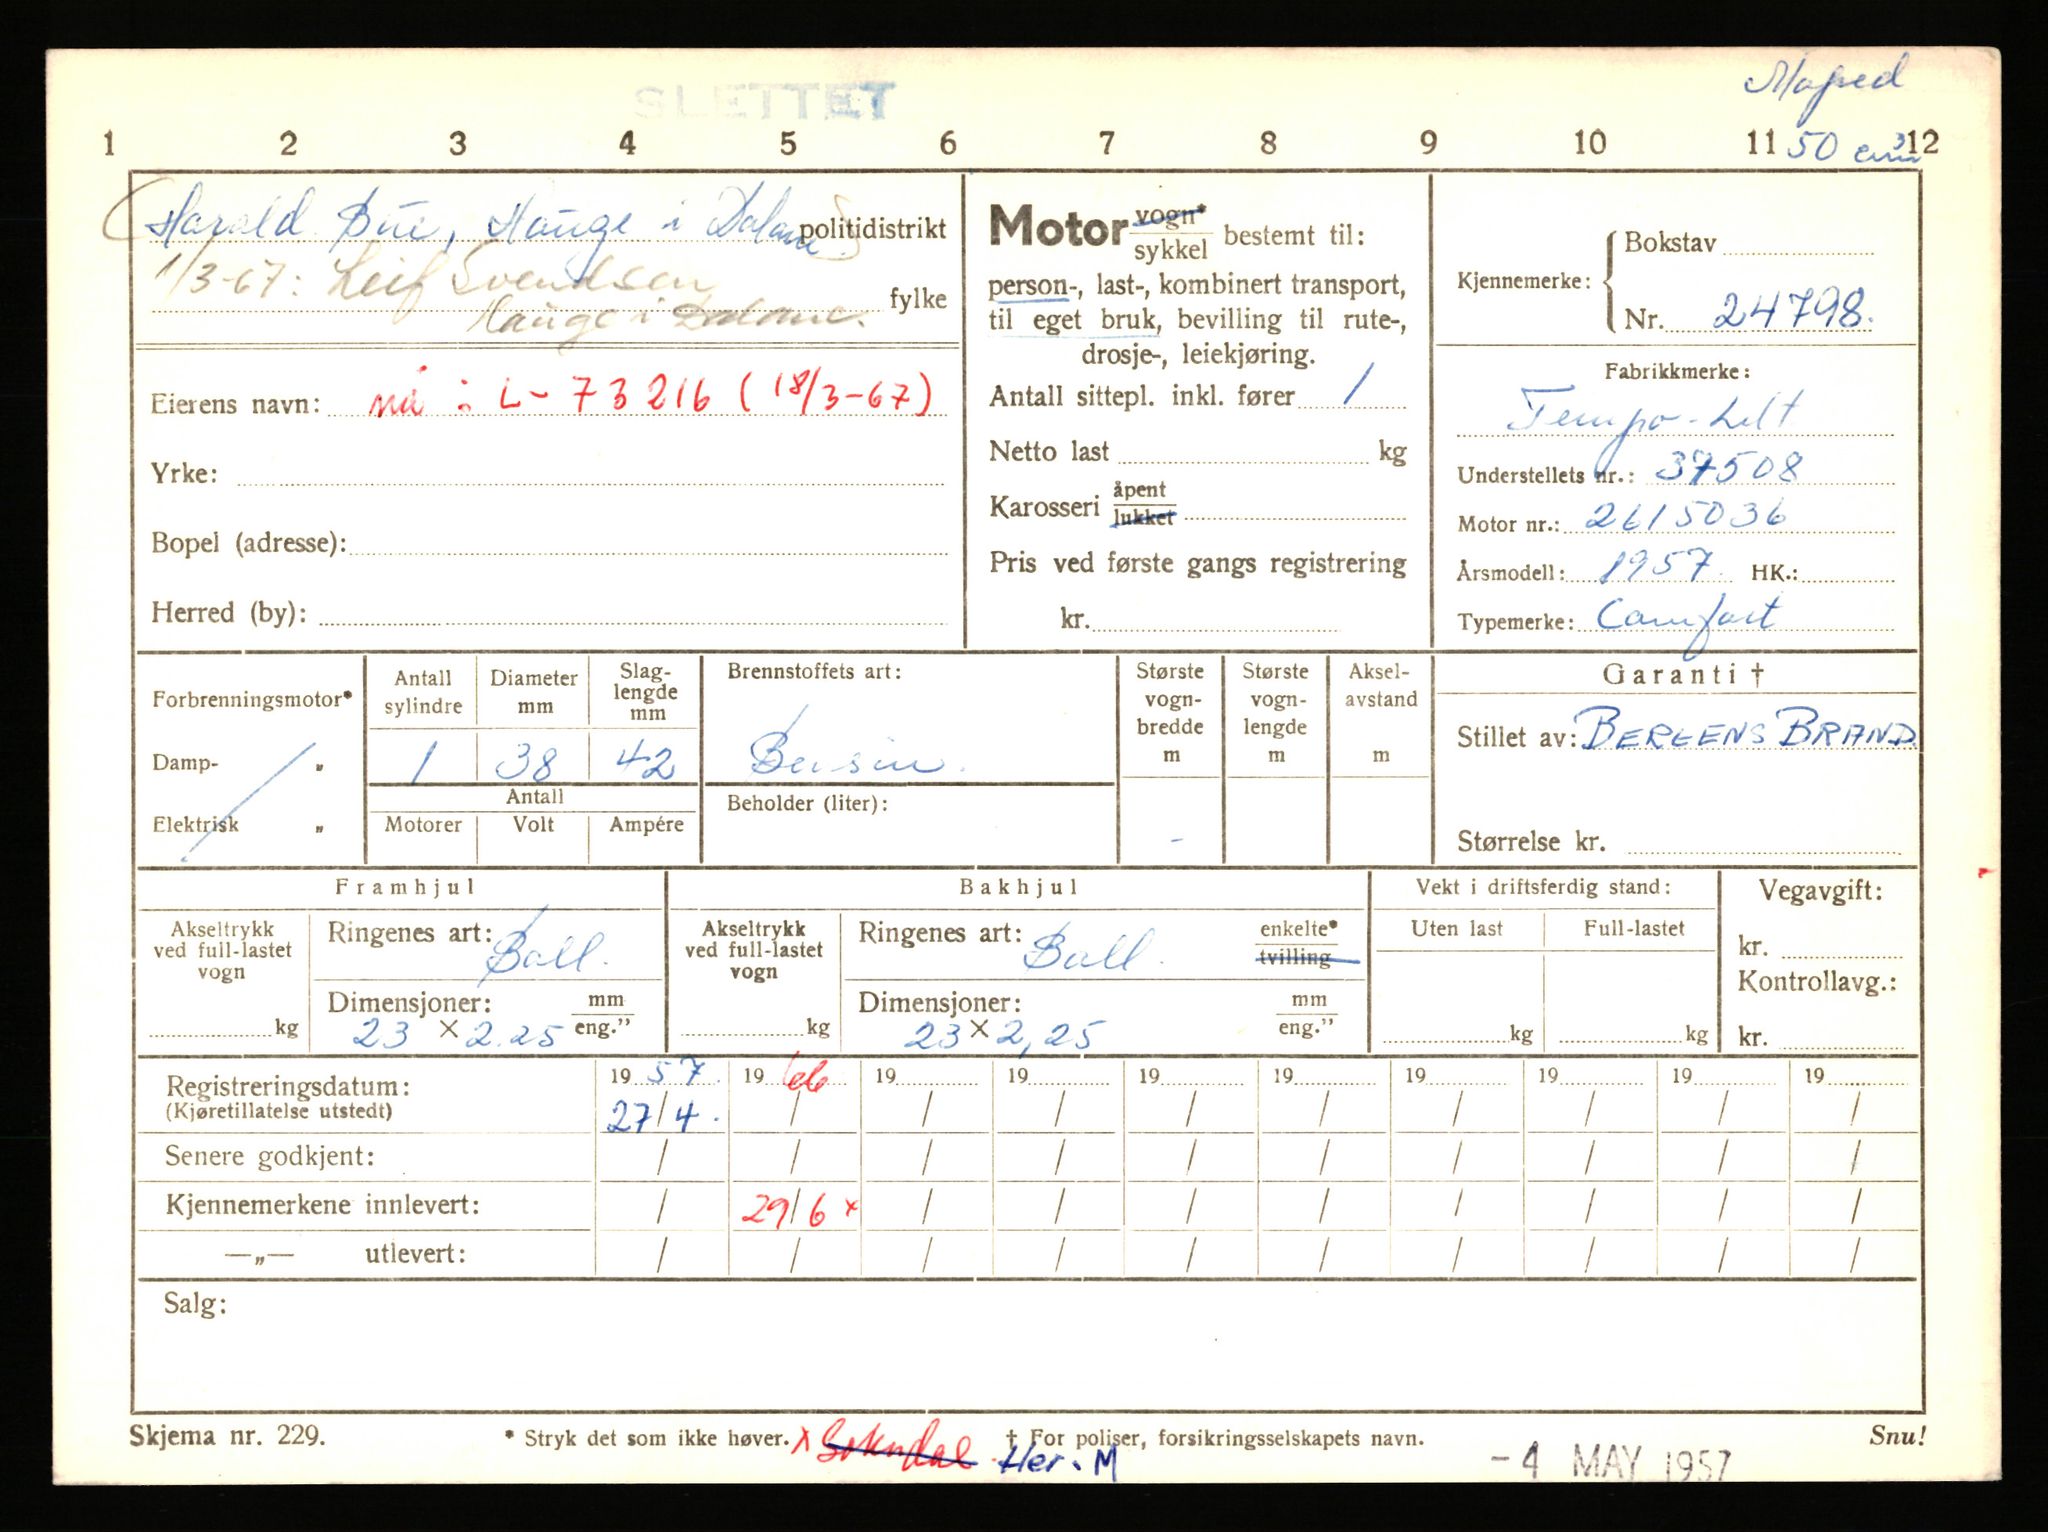 SLETTET
Moped
1 2 3 4 5 6 7 8 9 10 11 50 cm³ 12
Harald Bue, Hauge i Dalane politidistrikt
1/3-67: Leif Svendsen
Hauge i Dalane. fylke
Eierens navn: nå: L-73216 (18/3-67)
Yrke:
Bopel (adresse):
Herred (by):
Motor vogn* sykkel bestemt til:
person-, last-, kombinert transport,
til eget bruk, bevilling til rute-,
drosje-, leiekjøring.
Antall sittepl. inkl. fører 1
Netto last kg
Karosseri åpent lukket
Pris ved første gangs registrering
kr.
Kjennemerke: Bokstav
Nr. 24798.
Fabrikkmerke:
Tempo-Lett
Understellets nr.: 37508
Motor nr.: 2615036
Årsmodell: 1957 HK.:
Typemerke: Comfort
Forbrenningsmotor*
Damp- „
Elektrisk „
Antall sylindre Diameter mm Slag-lengde mm
1 38 42
Antall
Motorer Volt Ampére
Brennstoffets art:
Bensin.
Beholder (liter):
Største vogn-bredde m
Største vogn-lengde m
Aksel-avstand m
-
Garanti †
Stillet av: BERGENS BRAND.
Størrelse kr.
Framhjul
Akseltrykk ved full-lastet vogn
kg
Ringenes art: Ball.
Dimensjoner: mm eng.”
23 x 2.25
Bakhjul
Akseltrykk ved full-lastet vogn
kg
Ringenes art: Ball. enkelte* tvilling
Dimensjoner: mm eng.”
23 x 2,25
Vekt i driftsferdig stand:
Uten last Full-lastet
kg kg
Vegavgift:
kr.
Kontrollavg.:
kr.
Registreringsdatum: 19 57. 19 66 19 19 19 19 19 19 19 19
(Kjøretillatelse utstedt) 27/4. / / / / / / / / /
Senere godkjent: / / / / / / / / / /
Kjennemerkene innlevert: / 29/6 x / / / / / / / /
—„— utlevert: / / / / / / / / / /
Salg:
Skjema nr. 229. * Stryk det som ikke høver. x Sokndal Her. M † For poliser, forsikringsselskapets navn. Snu!
-4 MAY 1957